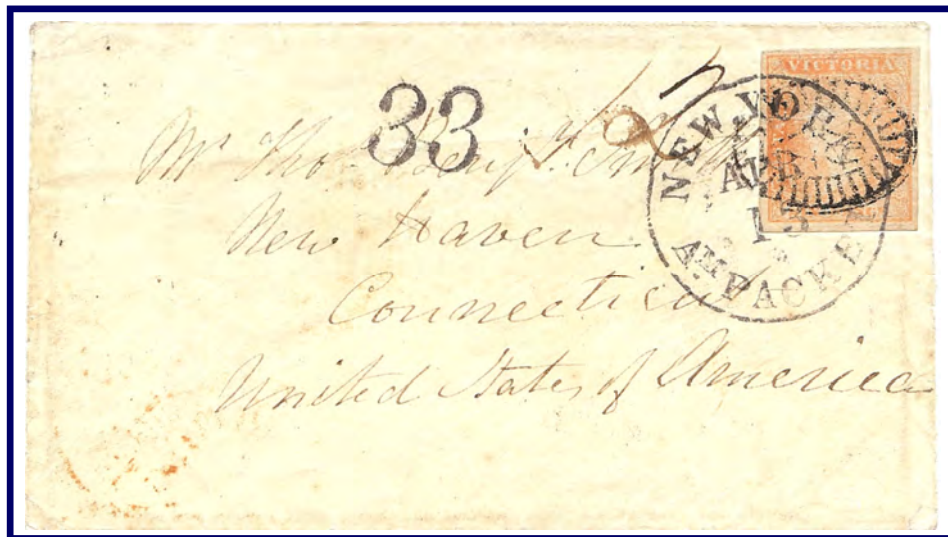 VICTORIA
33
NEW YORK
APR
13
AM PACKET
Mr Thos Benj
New Haven
Connecticut
United States of America